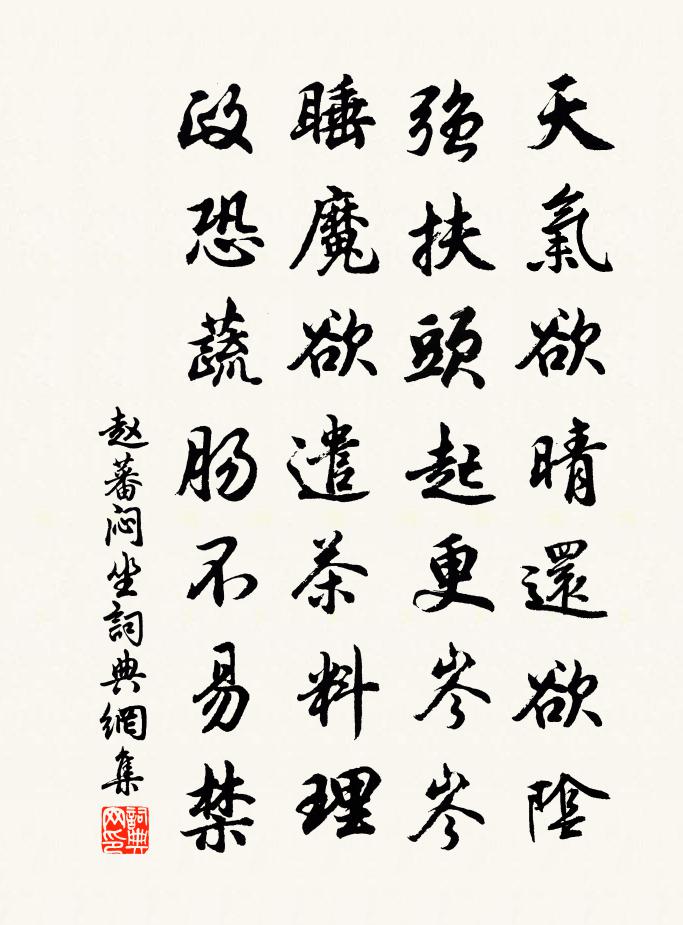 天氣欲晴還欲陰
強扶頭起更岑岑
睡魔欲遣茶料理
政恐蔬肠不易禁
赵蕃闷坐詞典網集
詞典网印